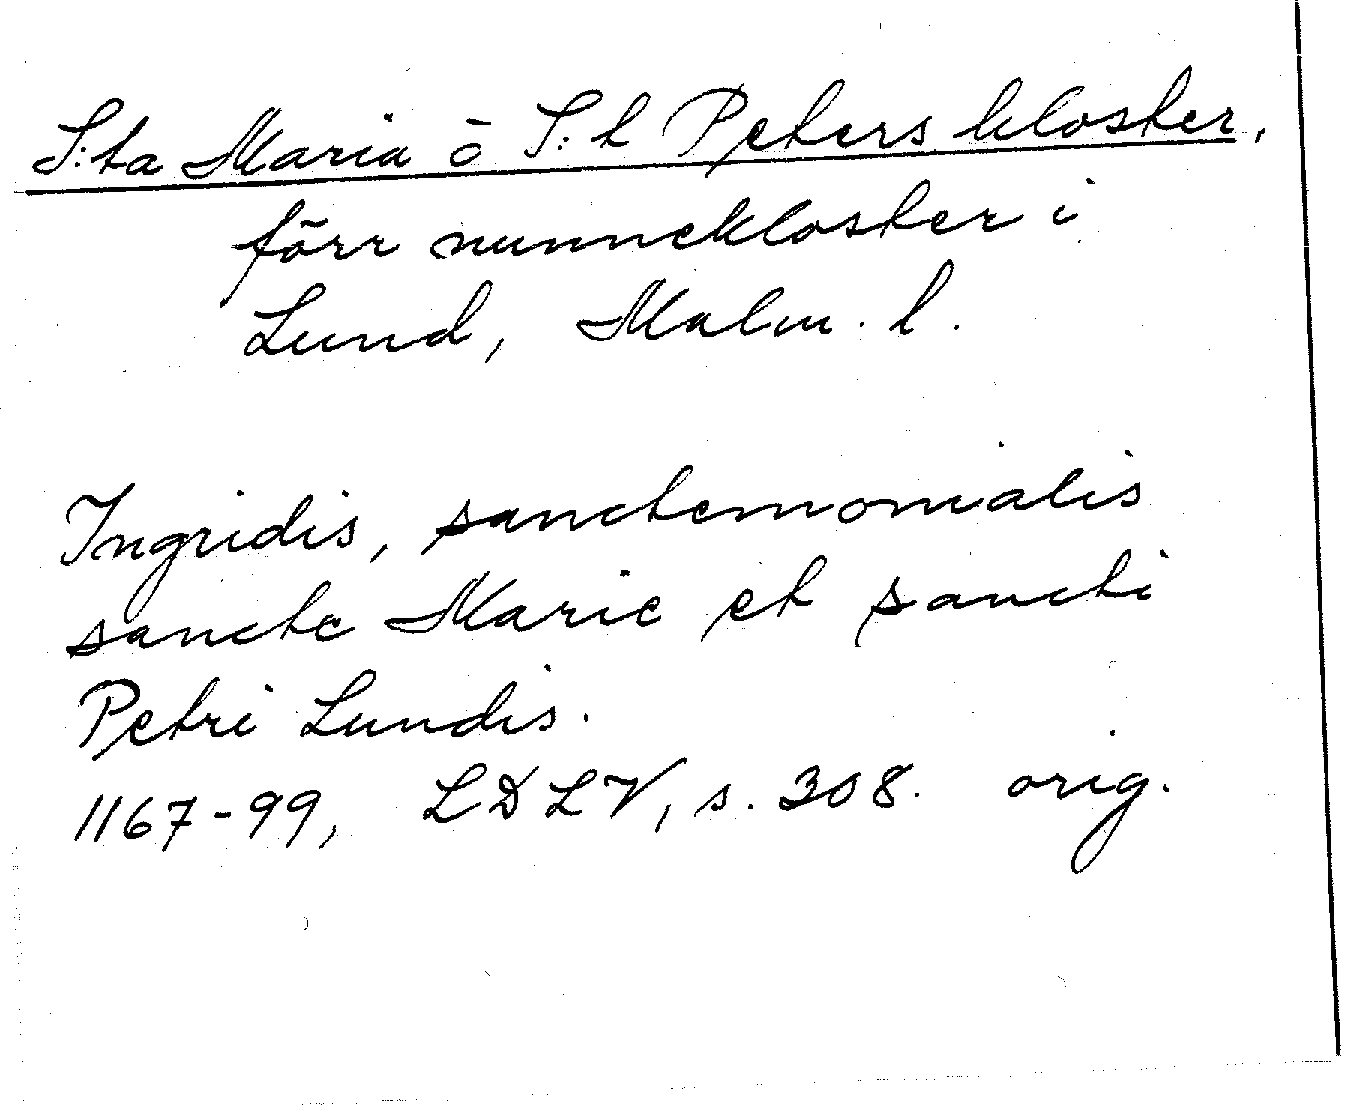 S:ta Maria o S:t Peters kloster,
förr nunnekloster i
Lund, Malm. l.
Ingridis, sanctemonialis
sancte Marie et sancti
Petri Lundis.
1167-99, LDLV, s. 308. orig.